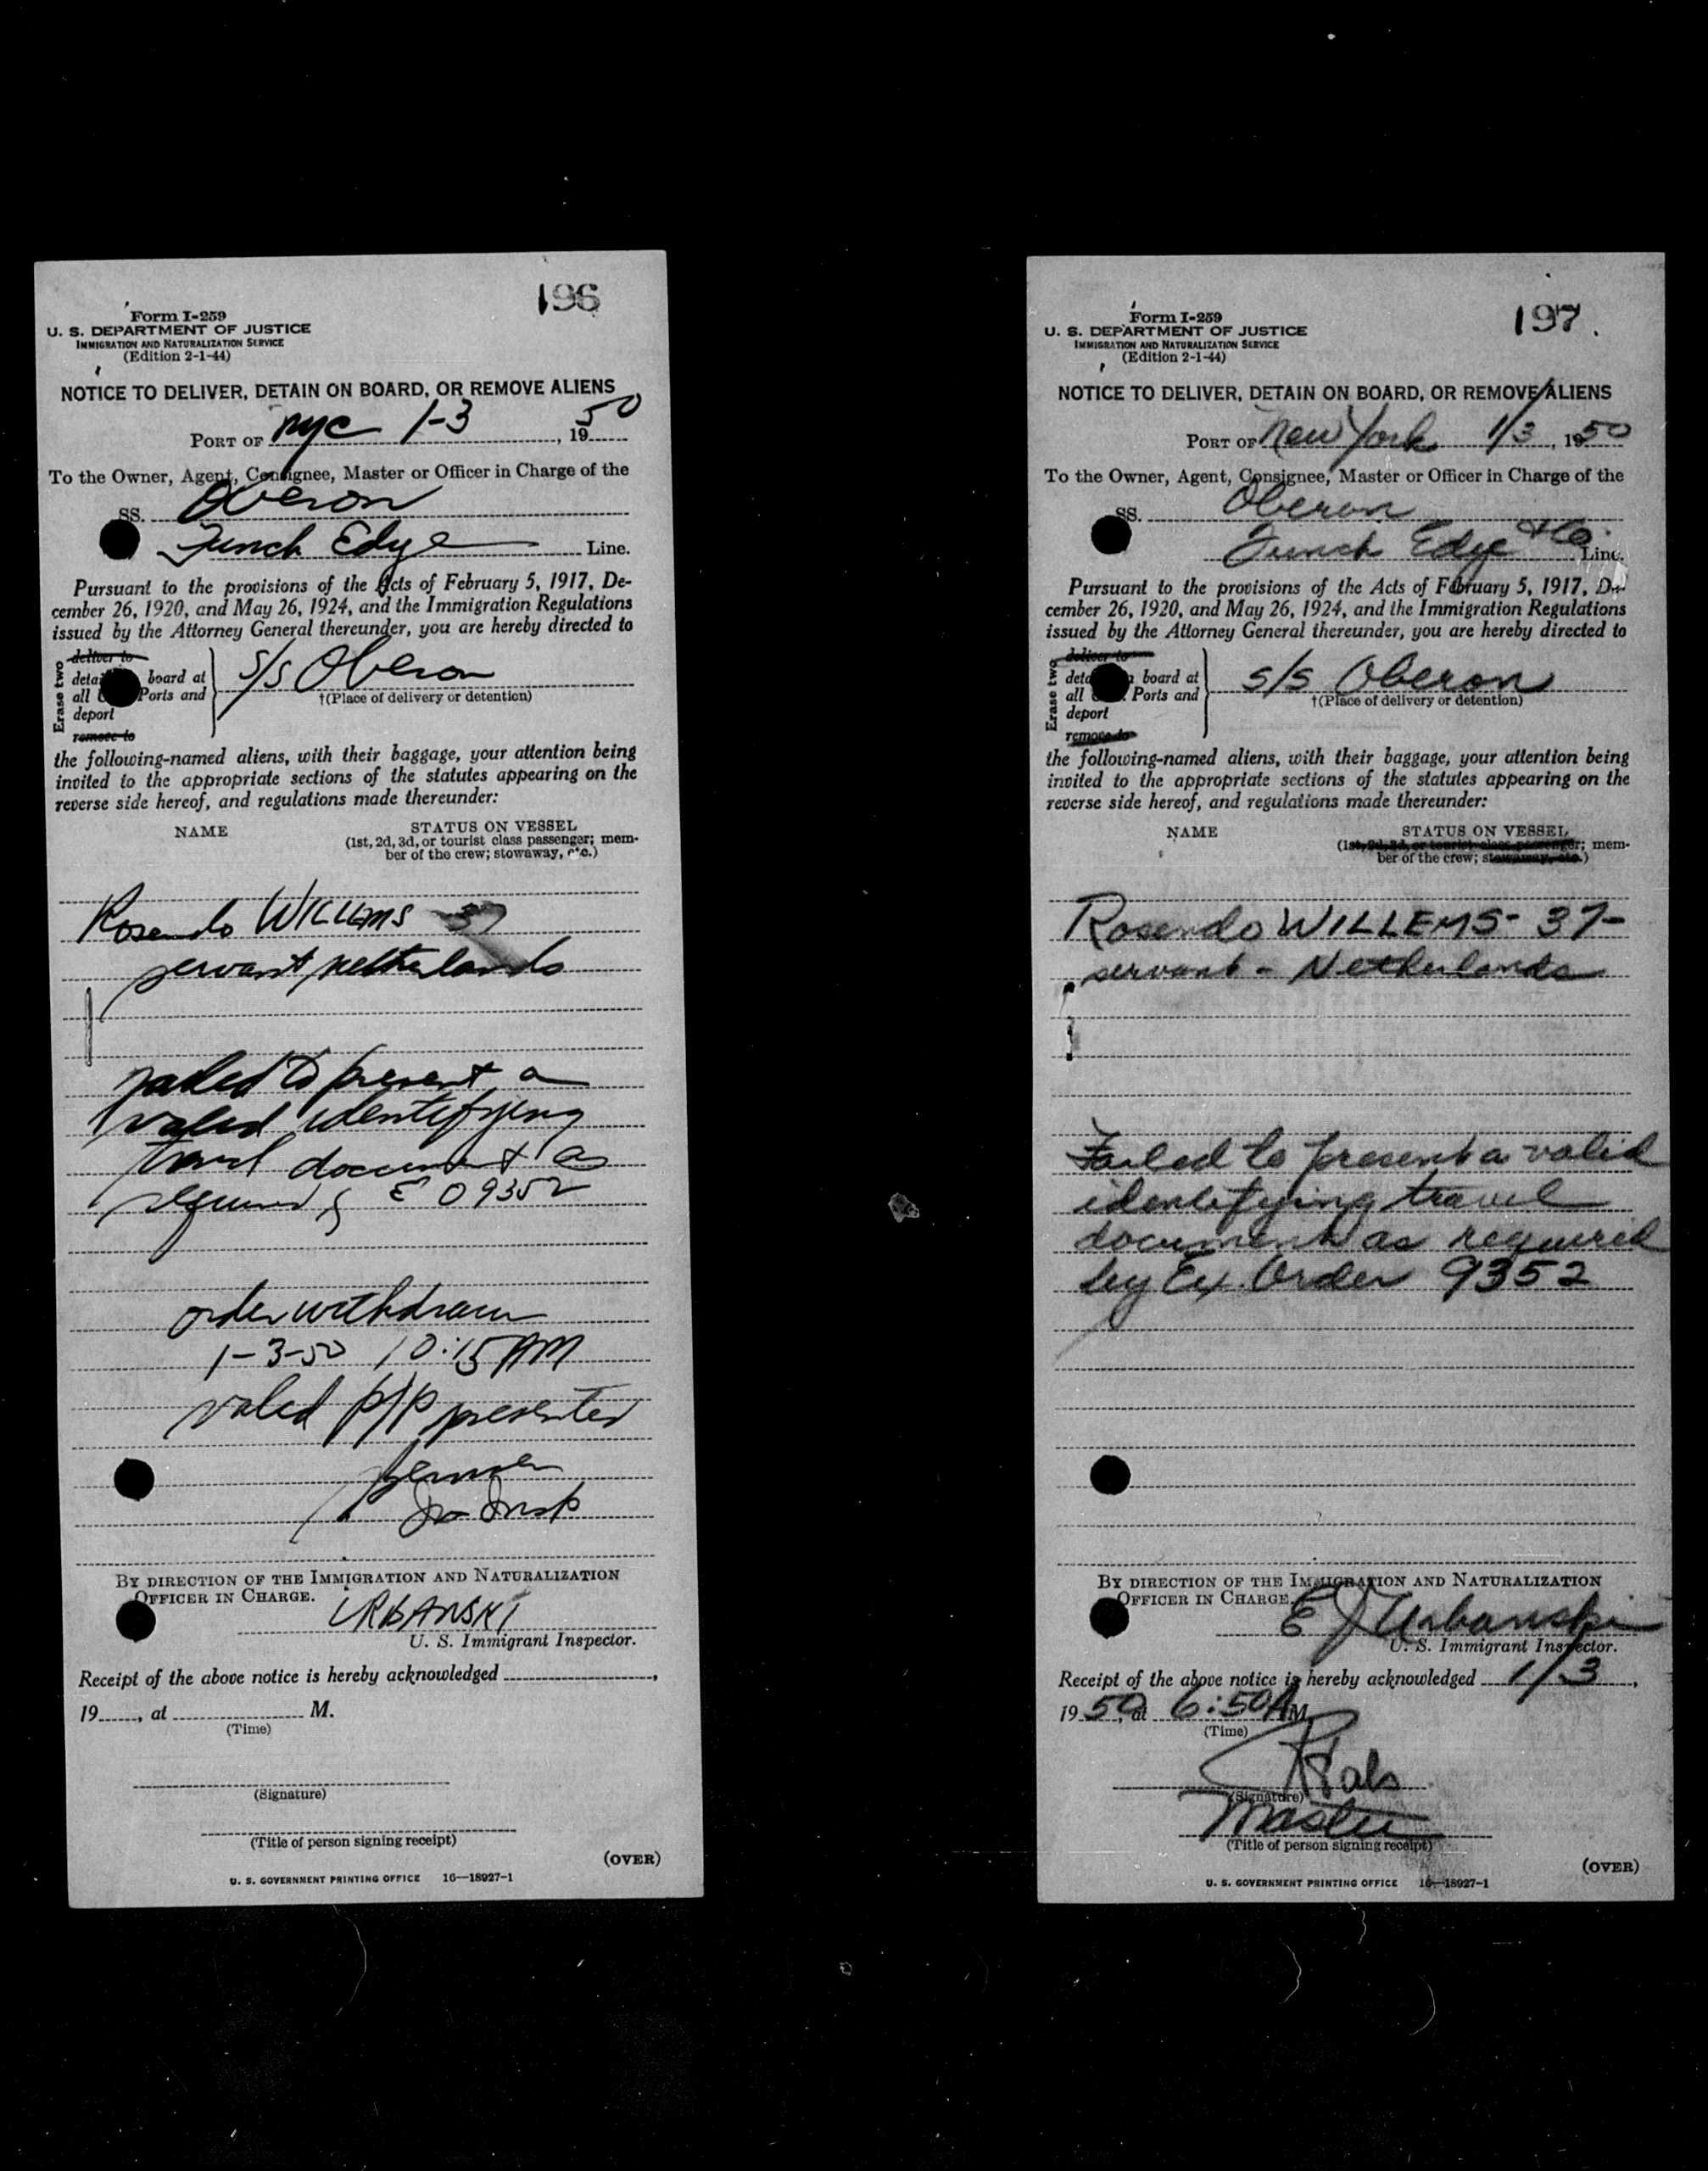 196
Form I-259
U. S. DEPARTMENT OF JUSTICE
IMMIGRATION AND NATURALIZATION SERVICE
(Edition 2-1-44)
NOTICE TO DELIVER, DETAIN ON BOARD, OR REMOVE ALIENS
PORT OF nyc 1-3, 1950
To the Owner, Agent, Consignee, Master or Officer in Charge of the
SS. Oberon
Funch Edye Line.
Pursuant to the provisions of the Acts of February 5, 1917, De-
cember 26, 1920, and May 26, 1924, and the Immigration Regulations
issued by the Attorney General thereunder, you are hereby directed to
Erase two
deliver to
board at
all Ports and
deport
remove to
S/S Oberon
†(Place of delivery or detention)
the following-named aliens, with their baggage, your attention being
invited to the appropriate sections of the statutes appearing on the
reverse side hereof, and regulations made thereunder:
NAME STATUS ON VESSEL
(1st, 2d, 3d, or tourist class passenger; mem-
ber of the crew; stowaway, etc.)
Rosendo WILLEMS 37
servant, netherlands
failed to present a
valid identifying
travel document as
required by E O 9352
order withdrawn
1-3-50 10:15 AM
valid p/p presented
Insp
BY DIRECTION OF THE IMMIGRATION AND NATURALIZATION
OFFICER IN CHARGE.
URBANSKI
U. S. Immigrant Inspector.
Receipt of the above notice is hereby acknowledged ,
19 , at M.
(Time)
(Signature)
(Title of person signing receipt)
(OVER)
U. S. GOVERNMENT PRINTING OFFICE 16—18927-1
197.
Form I-259
U. S. DEPARTMENT OF JUSTICE
IMMIGRATION AND NATURALIZATION SERVICE
(Edition 2-1-44)
NOTICE TO DELIVER, DETAIN ON BOARD, OR REMOVE ALIENS
PORT OF New York 1/3, 1950
To the Owner, Agent, Consignee, Master or Officer in Charge of the
SS. Oberon
Funch Edye & Co. Line.
Pursuant to the provisions of the Acts of February 5, 1917, De-
cember 26, 1920, and May 26, 1924, and the Immigration Regulations
issued by the Attorney General thereunder, you are hereby directed to
Erase two
deliver to
board at
all Ports and
deport
remove to
S/S Oberon
†(Place of delivery or detention)
the following-named aliens, with their baggage, your attention being
invited to the appropriate sections of the statutes appearing on the
reverse side hereof, and regulations made thereunder:
NAME STATUS ON VESSEL
(1st, 2d, 3d, or tourist class passenger; mem-
ber of the crew; stowaway, etc.)
Rosendo WILLEMS - 37-
servant - Netherlands
Failed to present a valid
identifying travel
document as required
by Ex. Order 9352
BY DIRECTION OF THE IMMIGRATION AND NATURALIZATION
OFFICER IN CHARGE.
E J Urbanski
U. S. Immigrant Inspector.
Receipt of the above notice is hereby acknowledged 1/3,
1950, at 6:50 A M.
(Time)
(Signature)
Master
(Title of person signing receipt)
(OVER)
U. S. GOVERNMENT PRINTING OFFICE 16—18927-1